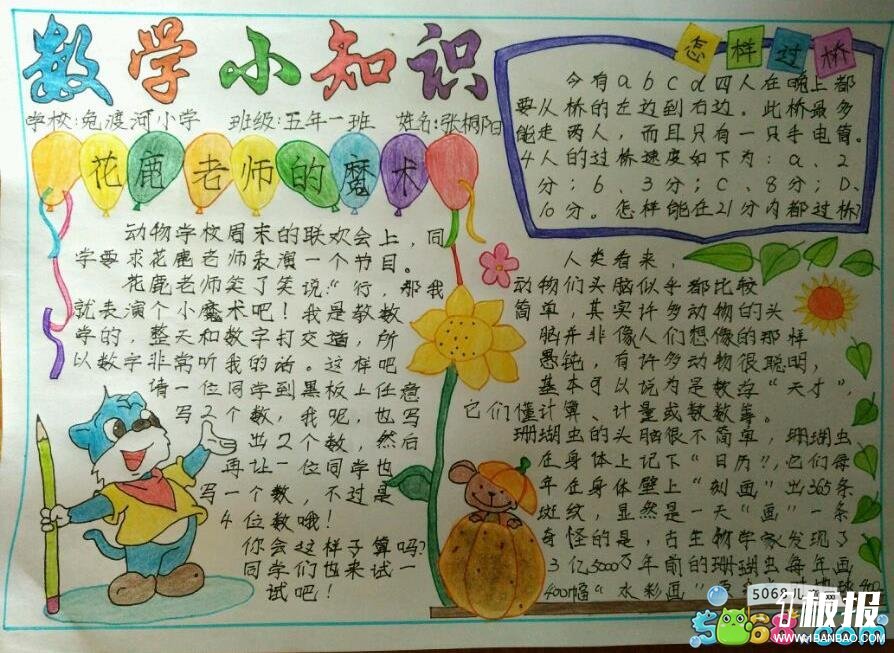 数学小知识
学校:兔渡河小学 班级:五年一班 姓名:张桐阳
花鹿老师的魔术
动物学校周末的联欢会上，同
学要求花鹿老师表演一个节目。
花鹿老师笑了笑说:"行，那我
就表演个小魔术吧！我是教数
学的，整天和数字打交道，所
以数字非常听我的话。这样吧
请一位同学到黑板上任意
写2个数，我呢，也写
出2个数，然后
再让一位同学也
写一个数，不过是
4位数哦！
你会这样子算吗?
同学们也来试一
试吧！
怎样过桥
今有a b c d四人在晚上都
要从桥的左边到右边。此桥最多
能走两人，而且只有一只手电筒。
4人的过桥速度如下为：a、2
分；b、3分；C、8分；D、
10分。怎样能在21分内都过桥?
人类看来，
动物们头脑似乎都比较
简单，其实许多动物的头
脑并非像人们想像的那样
愚钝，有许多动物很聪明，
基本可以说为是数学"天才"，
它们懂计算、计量或数数等。
珊瑚虫的头脑很不简单，珊瑚虫
在身体上记下"日历"，它们每
年在身体壁上"刻画"出365条
斑纹，显然是一天"画"一条
奇怪的是，古生物学家发现了
3亿5000万年前的珊瑚虫每年画
400幅"水彩画"
5068儿
板报
5068.com
WWW.41BANBAO.COM